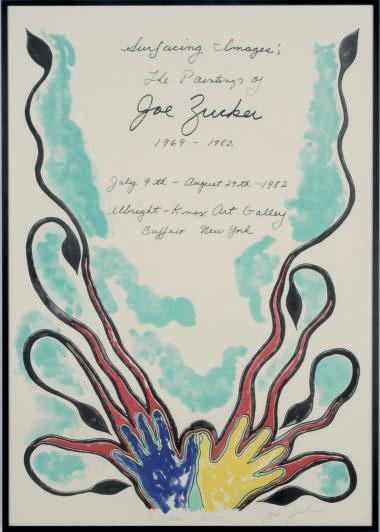 Surfacing Images;
The Paintings of
Joe Zucker
1969 - 1982
July 9th - August 29th - 1982
Albright-Knox Art Gallery
Buffalo New York